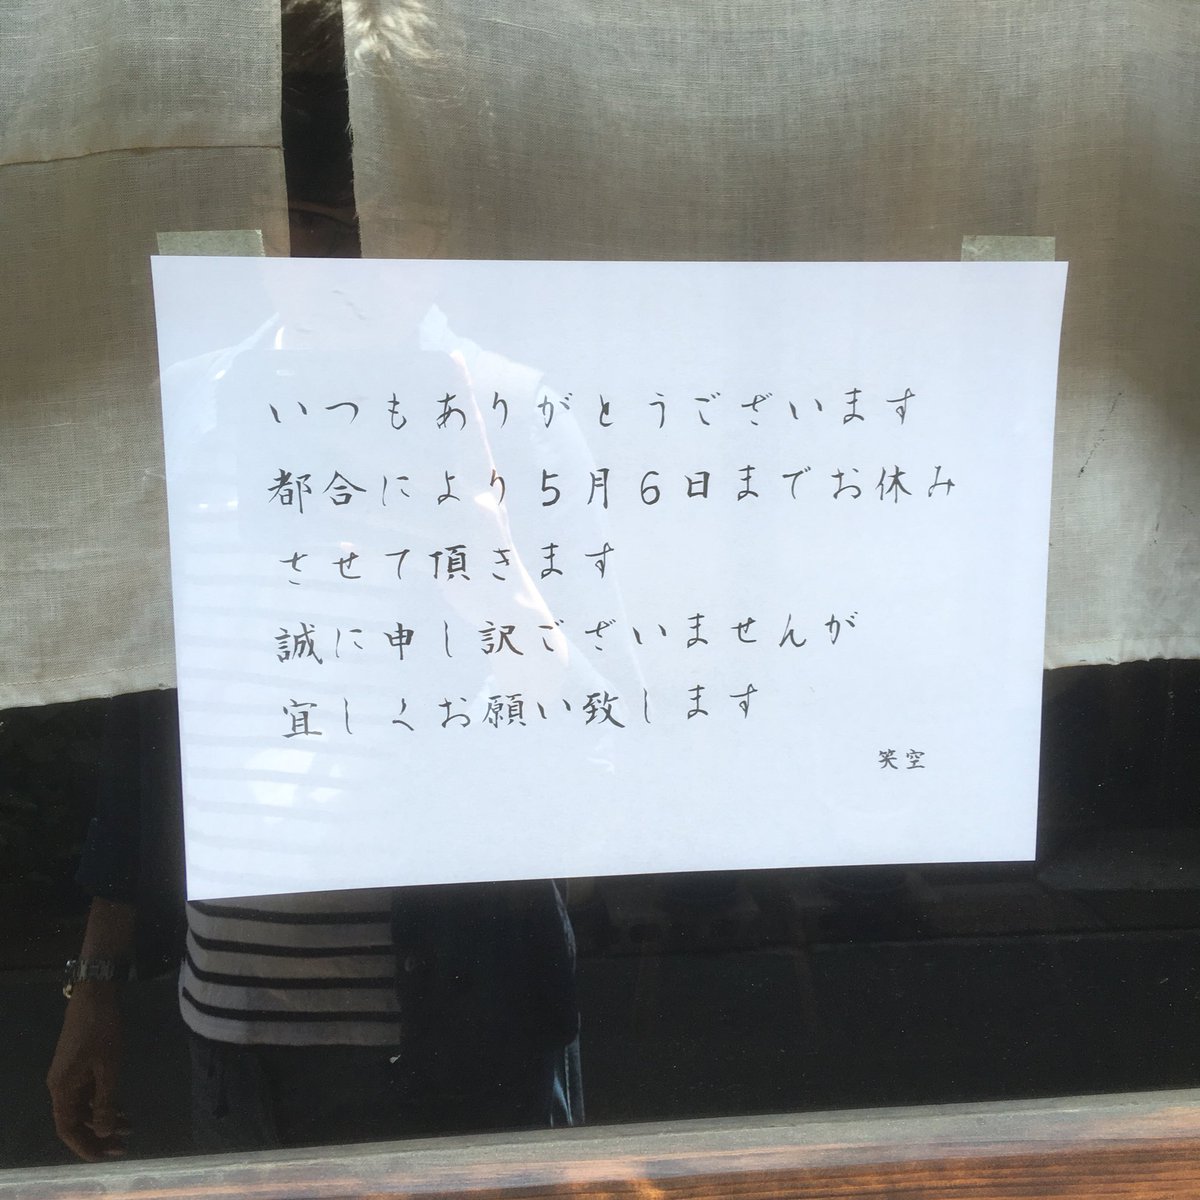 いつもありがとうございます
都合により5月6日までお休み
させて頂きます
誠に申し訳ございませんが
宜しくお願い致します
笑空